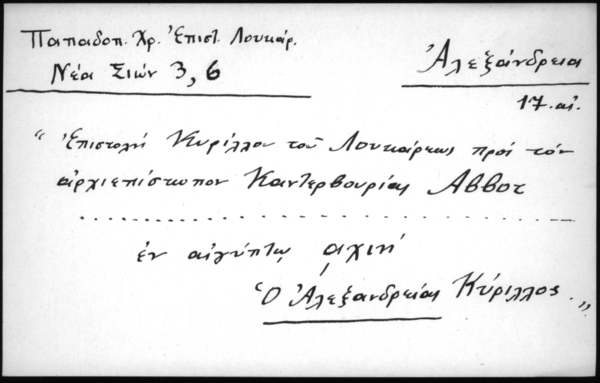 Παπαδοπ. Χρ. Ἐπιστ. Λουκάρ.
Νέα Σιών 3, 6
Ἀλεξάνδρεια
17. αἰ.
“ Ἐπιστολή Κυρίλλου τοῦ Λουκάρεως πρός τόν
ἀρχιεπίσκοπον Καντερβουρίας Αββοτ
ἐν αἰγύπτῳ ͵αχιη'
Ὁ Ἀλεξανδρείας Κύριλλος. „